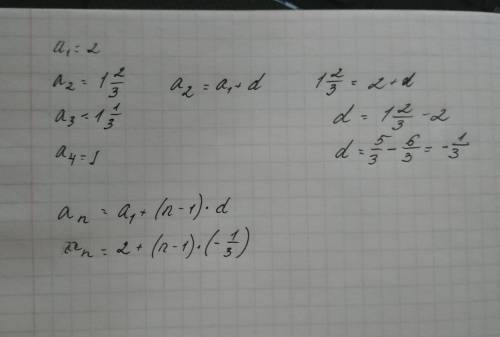 a₁ = 2
a₂ = 1 2/3    a₂ = a₁ + d    1 2/3 = 2 + d
a₃ = 1 1/3    d = 1 2/3 - 2
a₄ = 1    d = 5/3 - 6/3 = - 1/3
aₙ = a₁ + (n-1) · d
aₙ = 2 + (n-1) · (- 1/3)